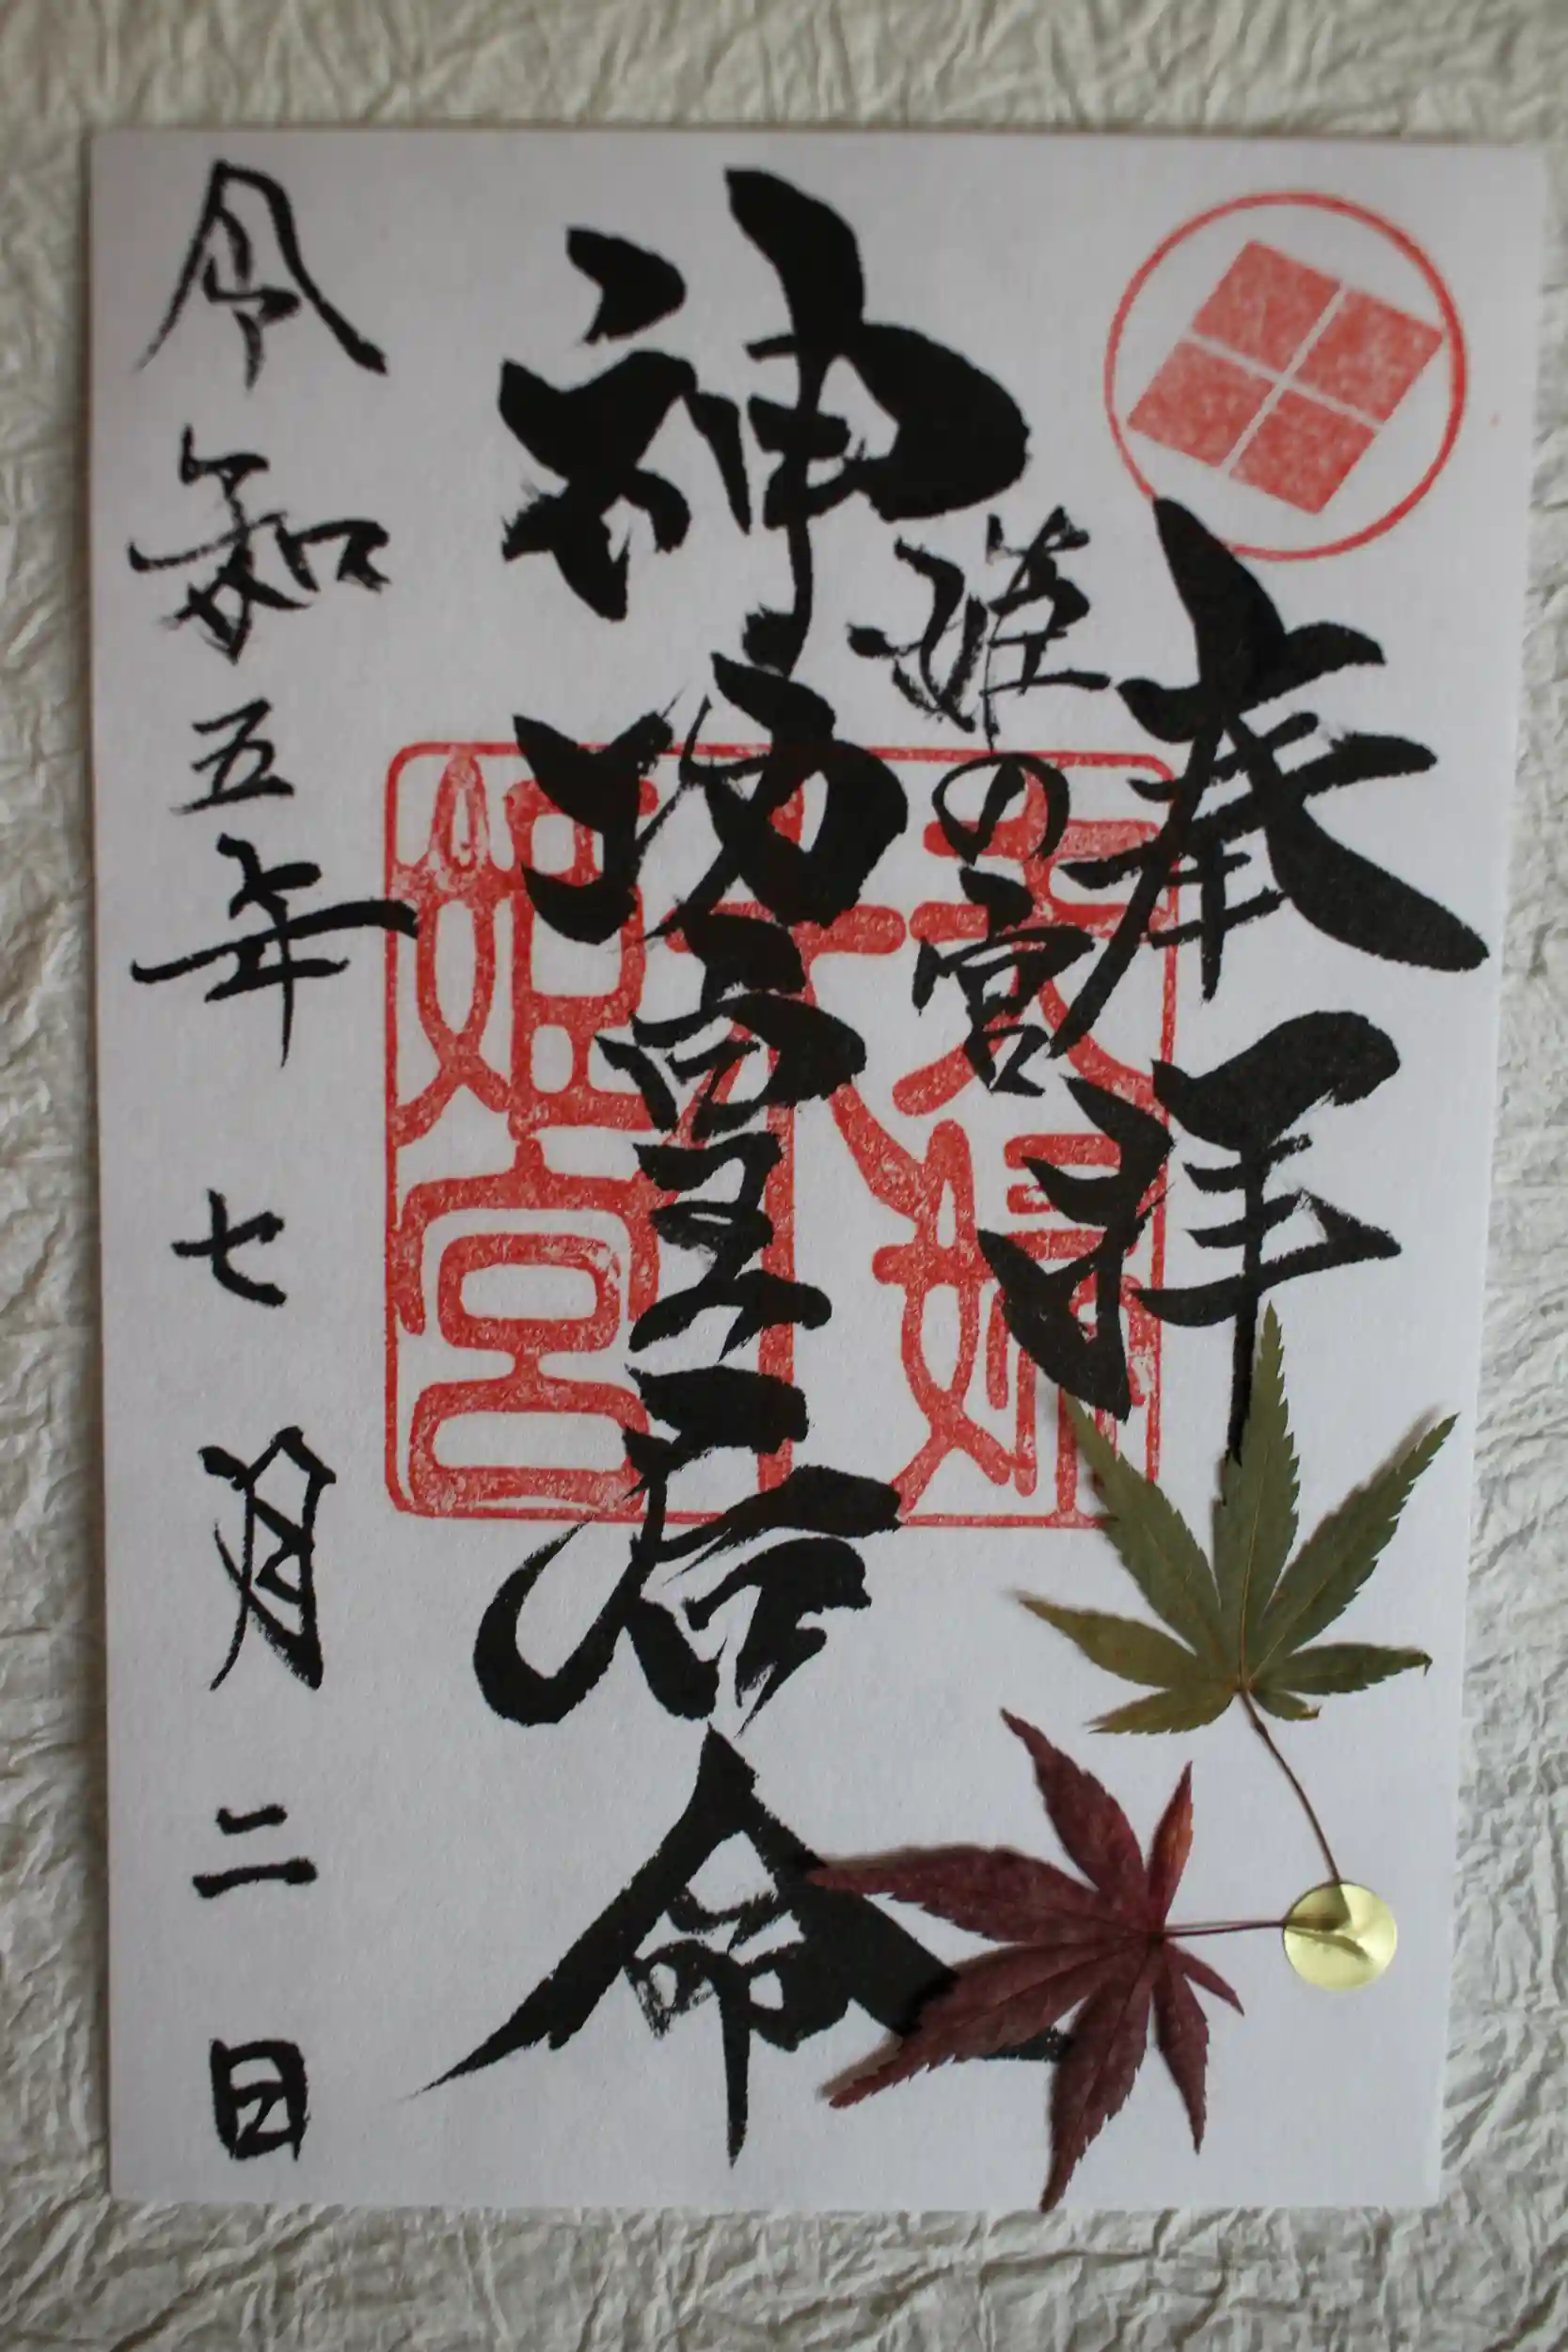 奉拝
姫の宮
神功皇后命
令和五年 七月 二日
夫婦
木
姫宮